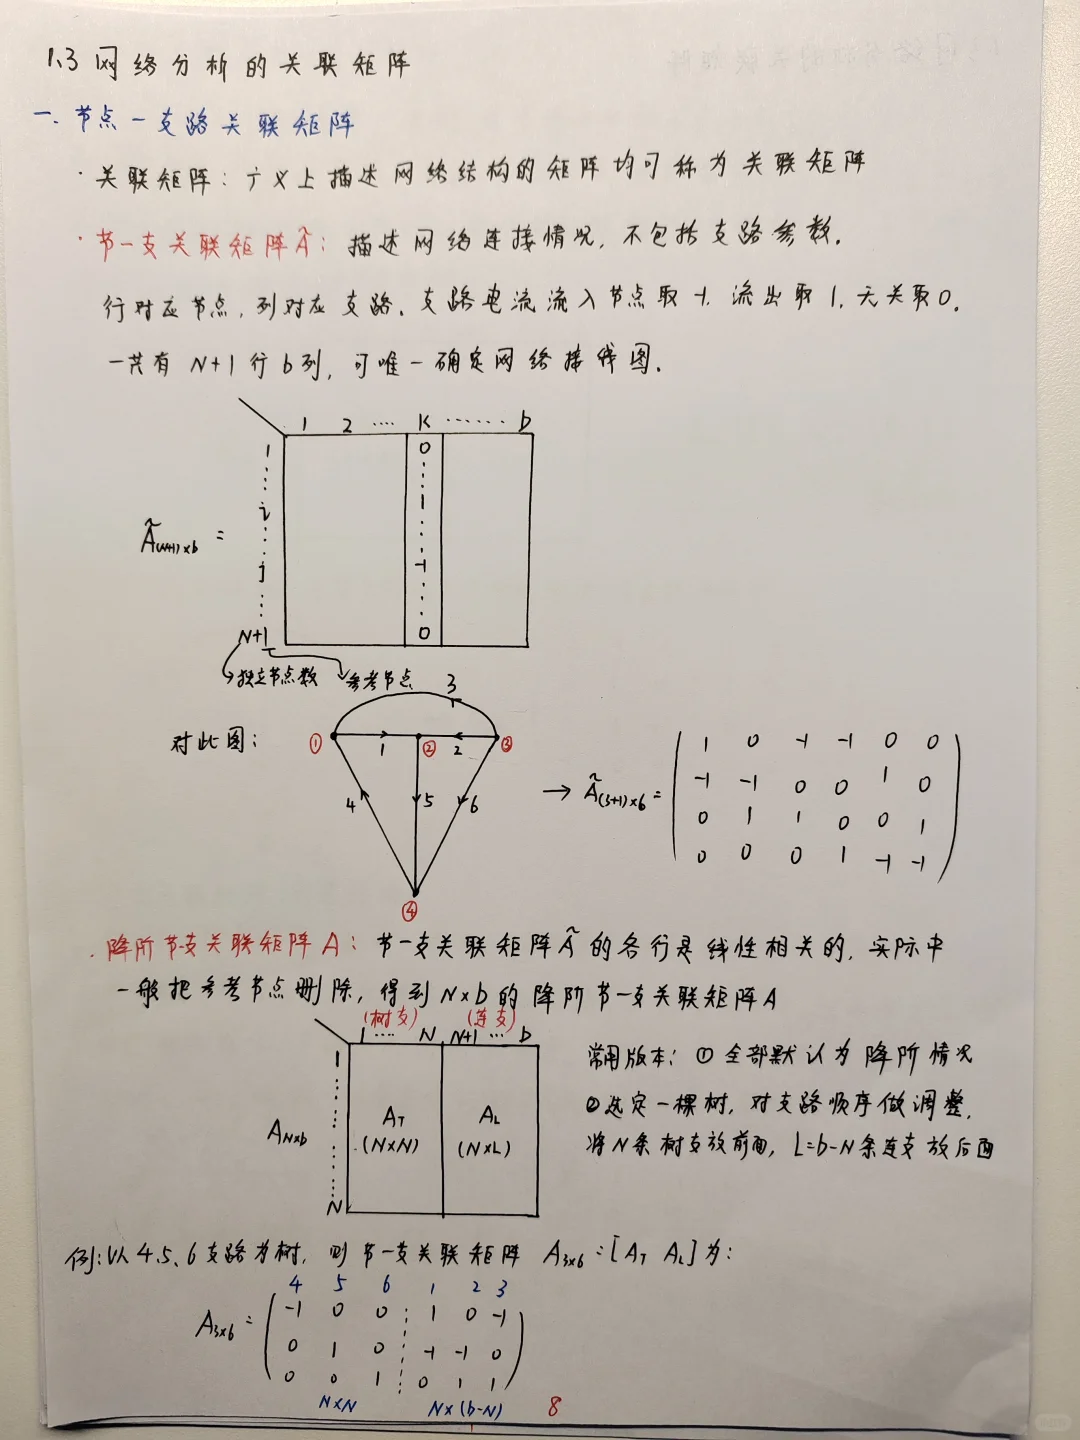 1.3 网络分析的关联矩阵
一. 节点-支路关联矩阵
· 关联矩阵: 广义上描述网络结构的矩阵均可称为关联矩阵
· 节-支关联矩阵Ã: 描述网络连接情况, 不包括支路参数.
行对应节点, 列对应支路. 支路电流流入节点取-1. 流出取1. 无关取0.
一共有 N+1行b列, 可唯一确定网络接线图.
1 2 ···· K ······· b
1 0
i 1
Ã(N+1)×b =
j -1
N+1 0
独立节点数 参考节点
3
对此图:
① 1 ② 2 ③
4 5 6
④
→ Ã(3+1)×6 =
1 0 -1 -1 0 0
-1 -1 0 0 1 0
0 1 1 0 0 1
0 0 0 1 -1 -1
· 降阶节支关联矩阵A: 节-支关联矩阵Ã的各行是线性相关的, 实际中
一般把参考节点删除, 得到N×b的降阶节-支关联矩阵A
(树支) (连支)
1 ···· N N+1 ··· b
1
AN×b
AT AL
(N×N) (N×L)
N
常用版本: ① 全部默认为降阶情况
②选定一棵树, 对支路顺序做调整,
将N条树支放前面, L=b-N条连支放后面
例: 以4.5、6支路为树, 则节-支关联矩阵 A3×6=[AT AL]为:
4 5 6 1 2 3
A3×6 =
-1 0 0 1 0 -1
0 1 0 -1 -1 0
0 0 1 0 1 1
N×N N×(b-N)
8